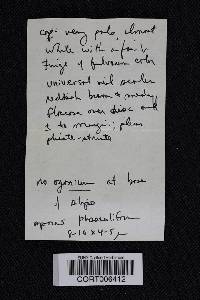 cap: very pale, almost
white with a faint
tinge of fulvous color
universal veil scales
reddish brown & mealy
floccose over disc and
± to margin; pileus
plicate-striate
no ozonium at base
of stipe
spores phaseoliform
8-10 x 4-5 μ
CORT006412